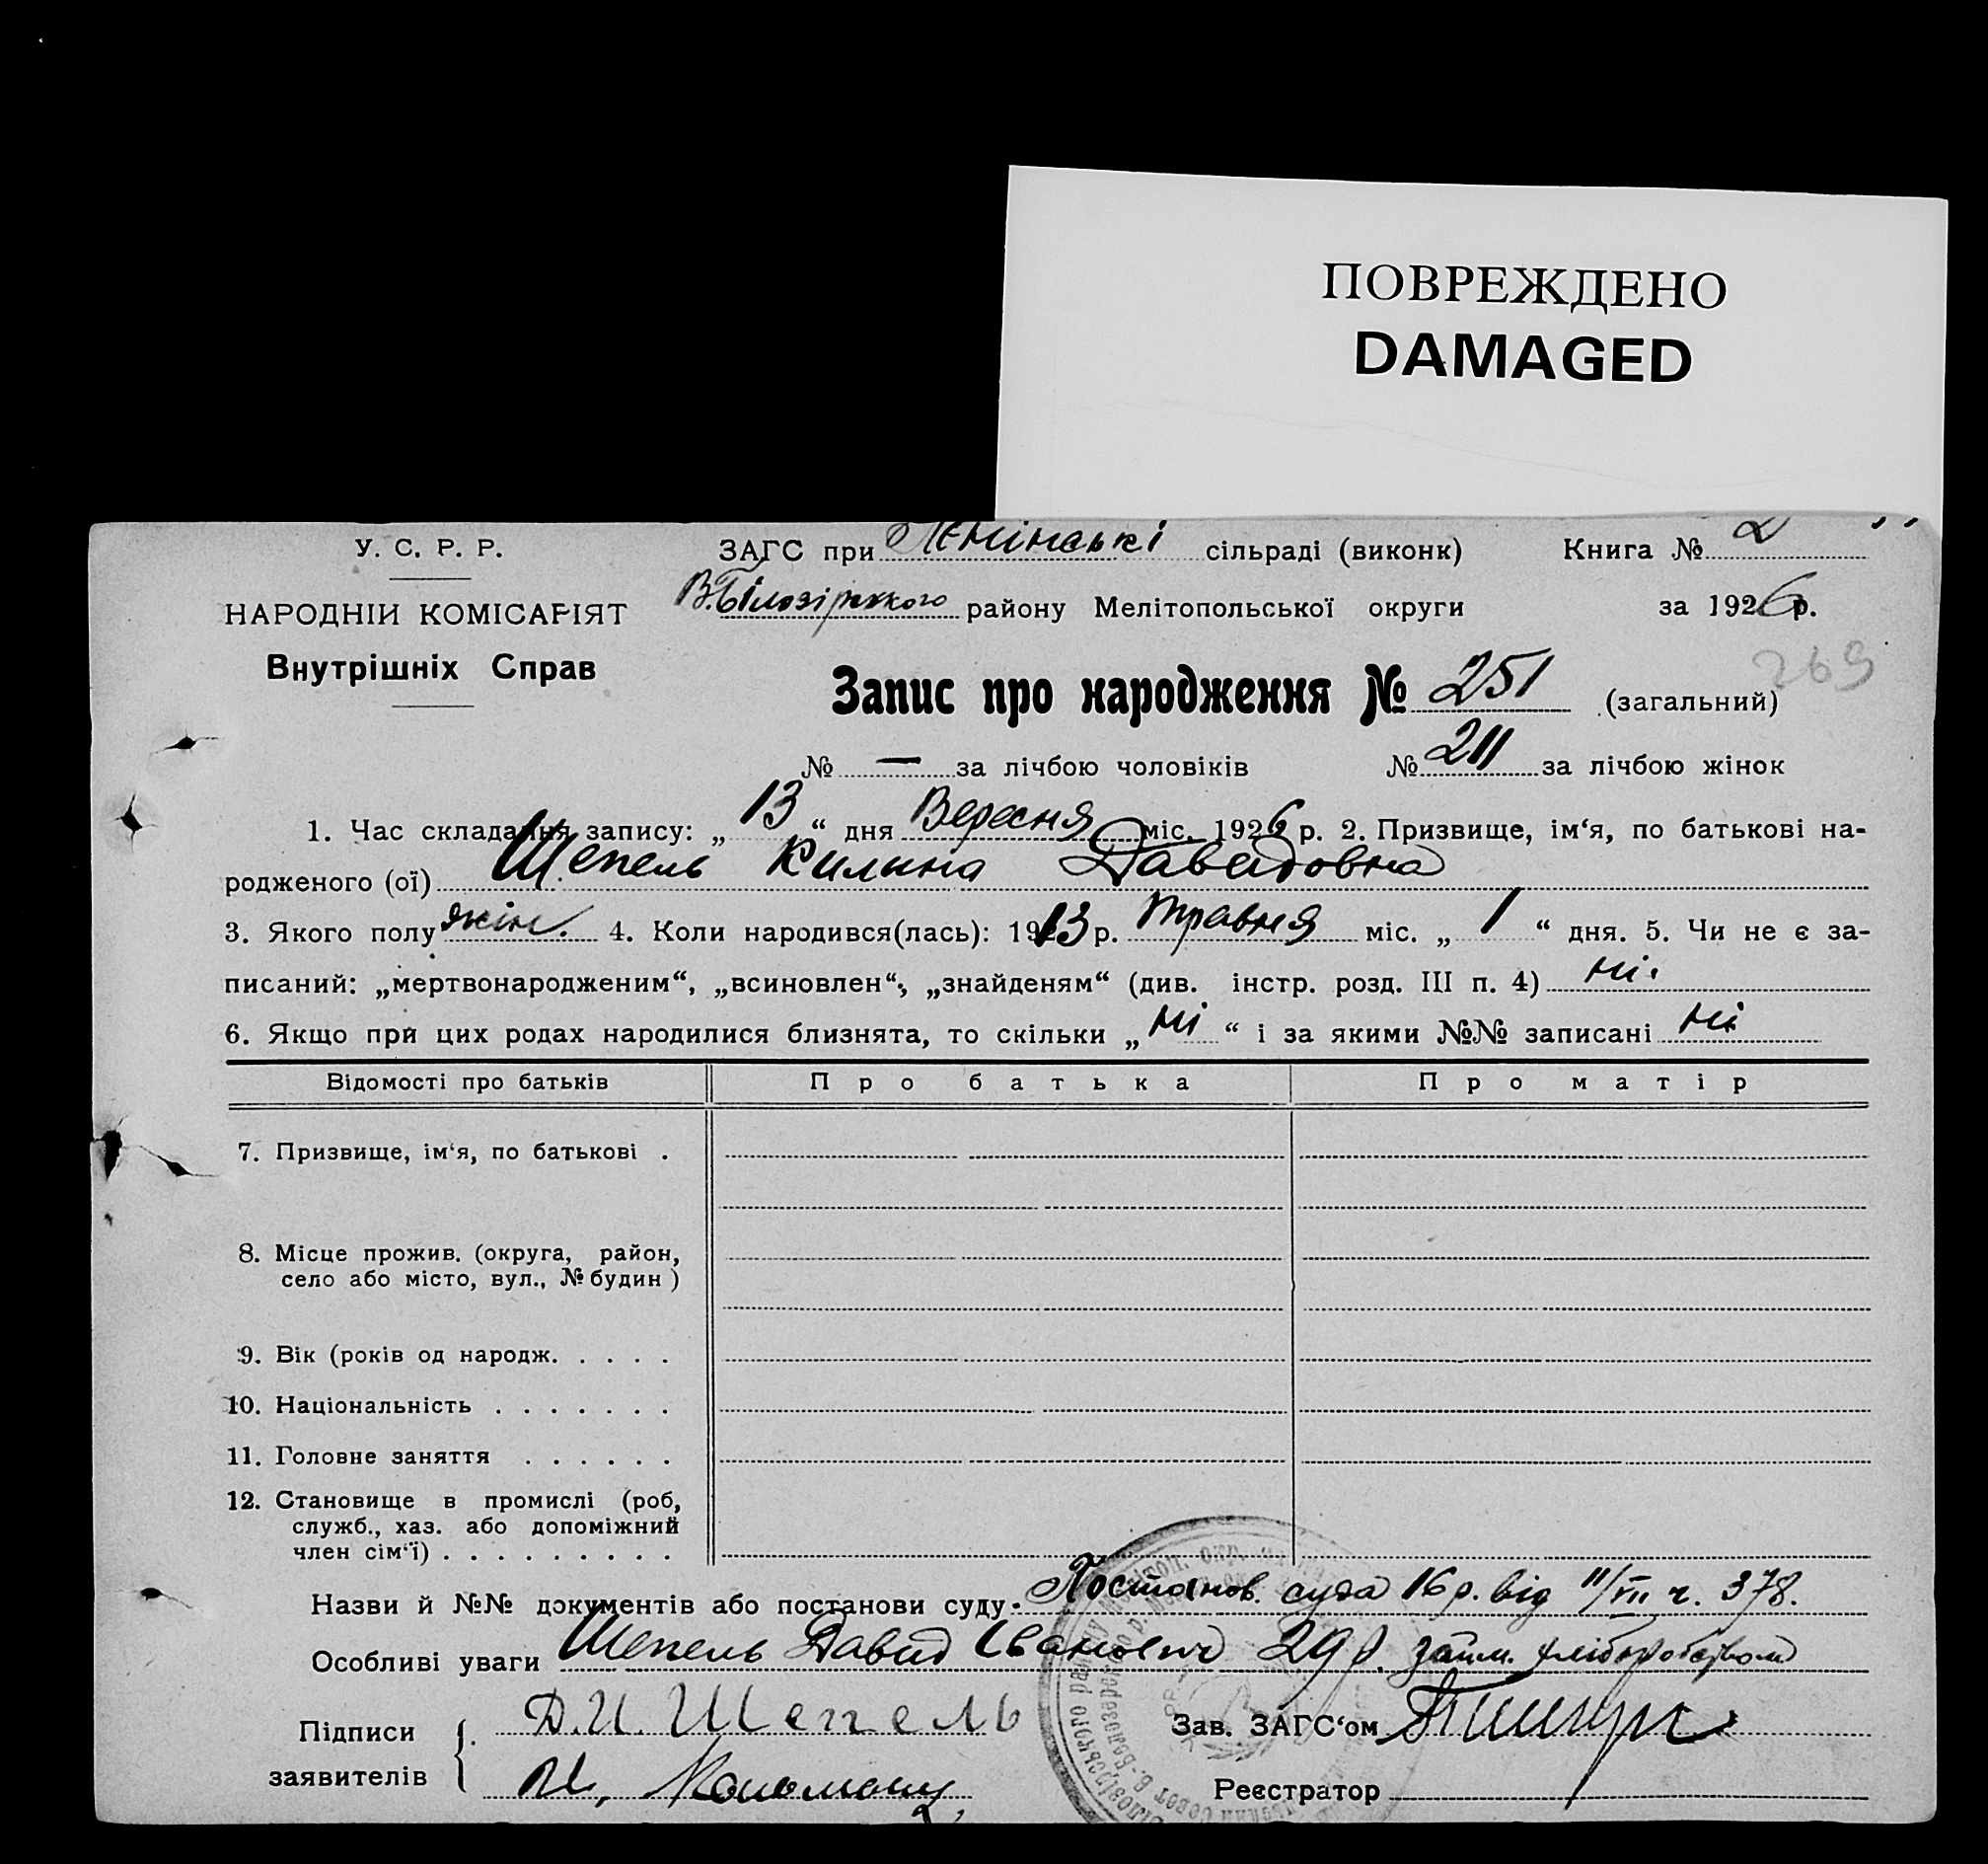 ПОВРЕЖДЕНО
DAMAGED
У. С. Р. Р.
ЗАГС при Ленінські сільраді (виконк) Книга № 2
НАРОДНІЙ КОМІСАРІЯТ
В.Білозірського району Мелітопольської округи за 1926 р.
Внутрішніх Справ
269
Запис про народження № 251 (загальний)
№ — за лічбою чоловіків № 211 за лічбою жінок
1. Час складання запису: „13“ дня Вересня міс. 1926 р. 2. Призвище, ім‘я, по батькові на-
родженого (ої) Шепель Килина Давидовна
3. Якого полу жін. 4. Коли народився(лась): 1913 р. Травня міс. „1“ дня. 5. Чи не є за-
писаний: „мертвонародженим“, „всиновлен“, „знайденям“ (див. інстр. розд. III п. 4) ні.
6. Якщо при цих родах народилися близнята, то скільки „ні“ і за якими №№ записані ні
Відомості про батьків Про батька Про матір
7. Призвище, ім‘я, по батькові .
8. Місце прожив. (округа, район,
село або місто, вул., № будин )
9. Вік (років од народж. . . . .
10. Національність . . . . . . .
11. Головне заняття . . . . . .
12. Становище в промислі (роб,
служб., хаз. або допоміжний
член сім‘ї) . . . . . . . . .
Назви й №№ документів або постанови суду: Постанов. суда 16 р. від 11/VII ч. 378.
Особливі уваги Шепель Давид Іванович 29 р. займ. хліборобством
Підписи Д. И. Шепель Зав. ЗАГС‘ом
заявителів Реєстратор